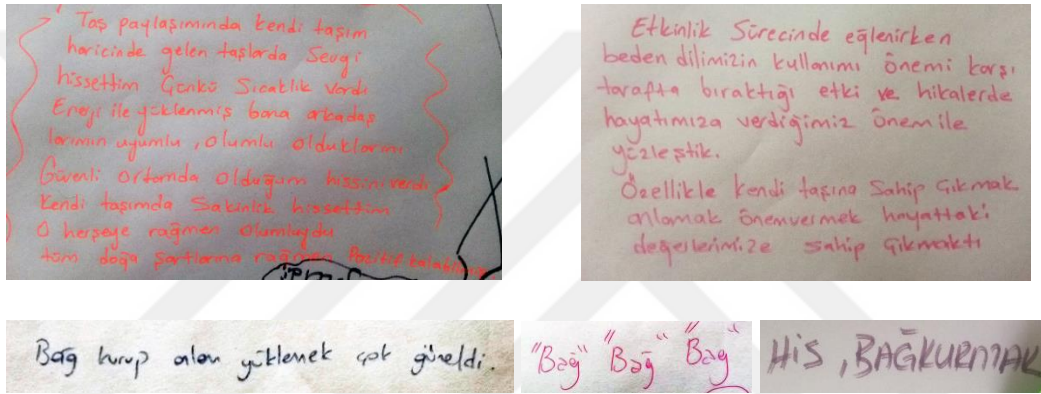 Taş paylaşımında kendi taşım
haricinde gelen taşlarda Sevgi
hissettim Çünkü Sıcaklık Verdi
Enerji ile yüklenmiş bana arkadaş
larımın uyumlu, olumlu olduklarını
Güvenli Ortamda Olduğum hissini verdi
Kendi taşımda Sakinlik hissettim
O herşeye rağmen Olumluydu
tüm doğa şartlarına rağmen Pozitif
Etkinlik Sürecinde eğlenirken
beden dilimizin kullanımı önemi karşı
tarafta bıraktığı etki ve hikalerde
hayatımıza verdiğimiz Önem ile
yüzleştik.
Özellikle kendi taşına Sahip Çıkmak
anlamak önemvermek hayattaki
değerlerimize sahip Çıkmaktı
Bağ kurup anlam yüklemek çok güzeldi.
"Bağ" "Bağ" "Bağ"
HİS, BAĞKURMAK